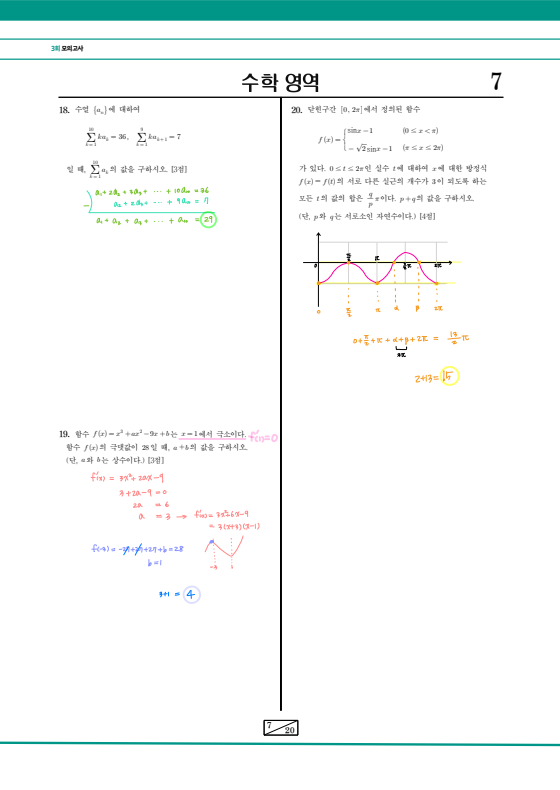 3회 모의고사
수학 영역
7
18. 수열 {aₙ}에 대하여
∑(k=1→10) kaₖ = 36, ∑(k=1→9) kaₖ₊₁ = 7
일 때, ∑(k=1→10) aₖ의 값을 구하시오. [3점]
a₁+2a₂+3a₃+ ··· + 10a₁₀ = 36
− a₂+2a₃+ ··· + 9a₁₀ = 7
a₁ + a₂ + a₃ + ··· + a₁₀ = 29
19. 함수 f(x)=x³+ax²−9x+b는 x=1에서 극소이다. f'(1)=0
함수 f(x)의 극댓값이 28일 때, a+b의 값을 구하시오.
(단, a와 b는 상수이다.) [3점]
f'(x) = 3x²+2ax−9
3+2a−9=0
2a = 6
a = 3 → f'(x)=3x²+6x−9
= 3(x+3)(x−1)
f(-3) = −27+27+27+b=28
b=1
-3 1
3+1 = 4
20. 닫힌구간 [0, 2π]에서 정의된 함수
f(x)= { sinx−1 (0≤x<π)
−√2 sinx−1 (π≤x≤2π)
가 있다. 0≤t≤2π인 실수 t에 대하여 x에 대한 방정식
f(x)=f(t)의 서로 다른 실근의 개수가 3이 되도록 하는
모든 t의 값의 합은 q/p π이다. p+q의 값을 구하시오.
(단, p와 q는 서로소인 자연수이다.) [4점]
0 π/2 π 3/2π 2π
0 π/2 π α β 2π
0+π/2+π+α+β+2π = 13/2 π
3π
2+13=15
7
20